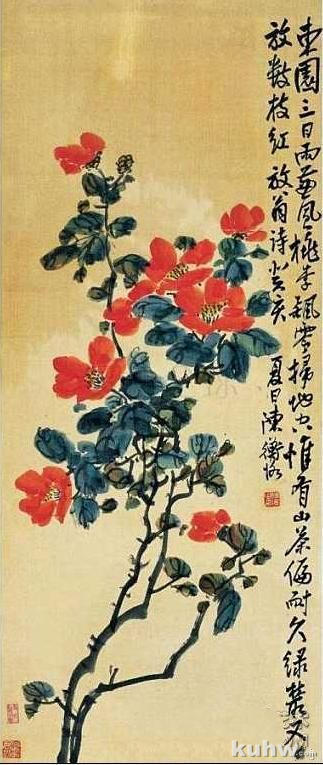 東園三日雨兼風桃李飄零掃地空惟有山茶偏耐久綠叢又
放數枝紅 放翁诗癸亥
夏日陳衡恪
kuhw.com